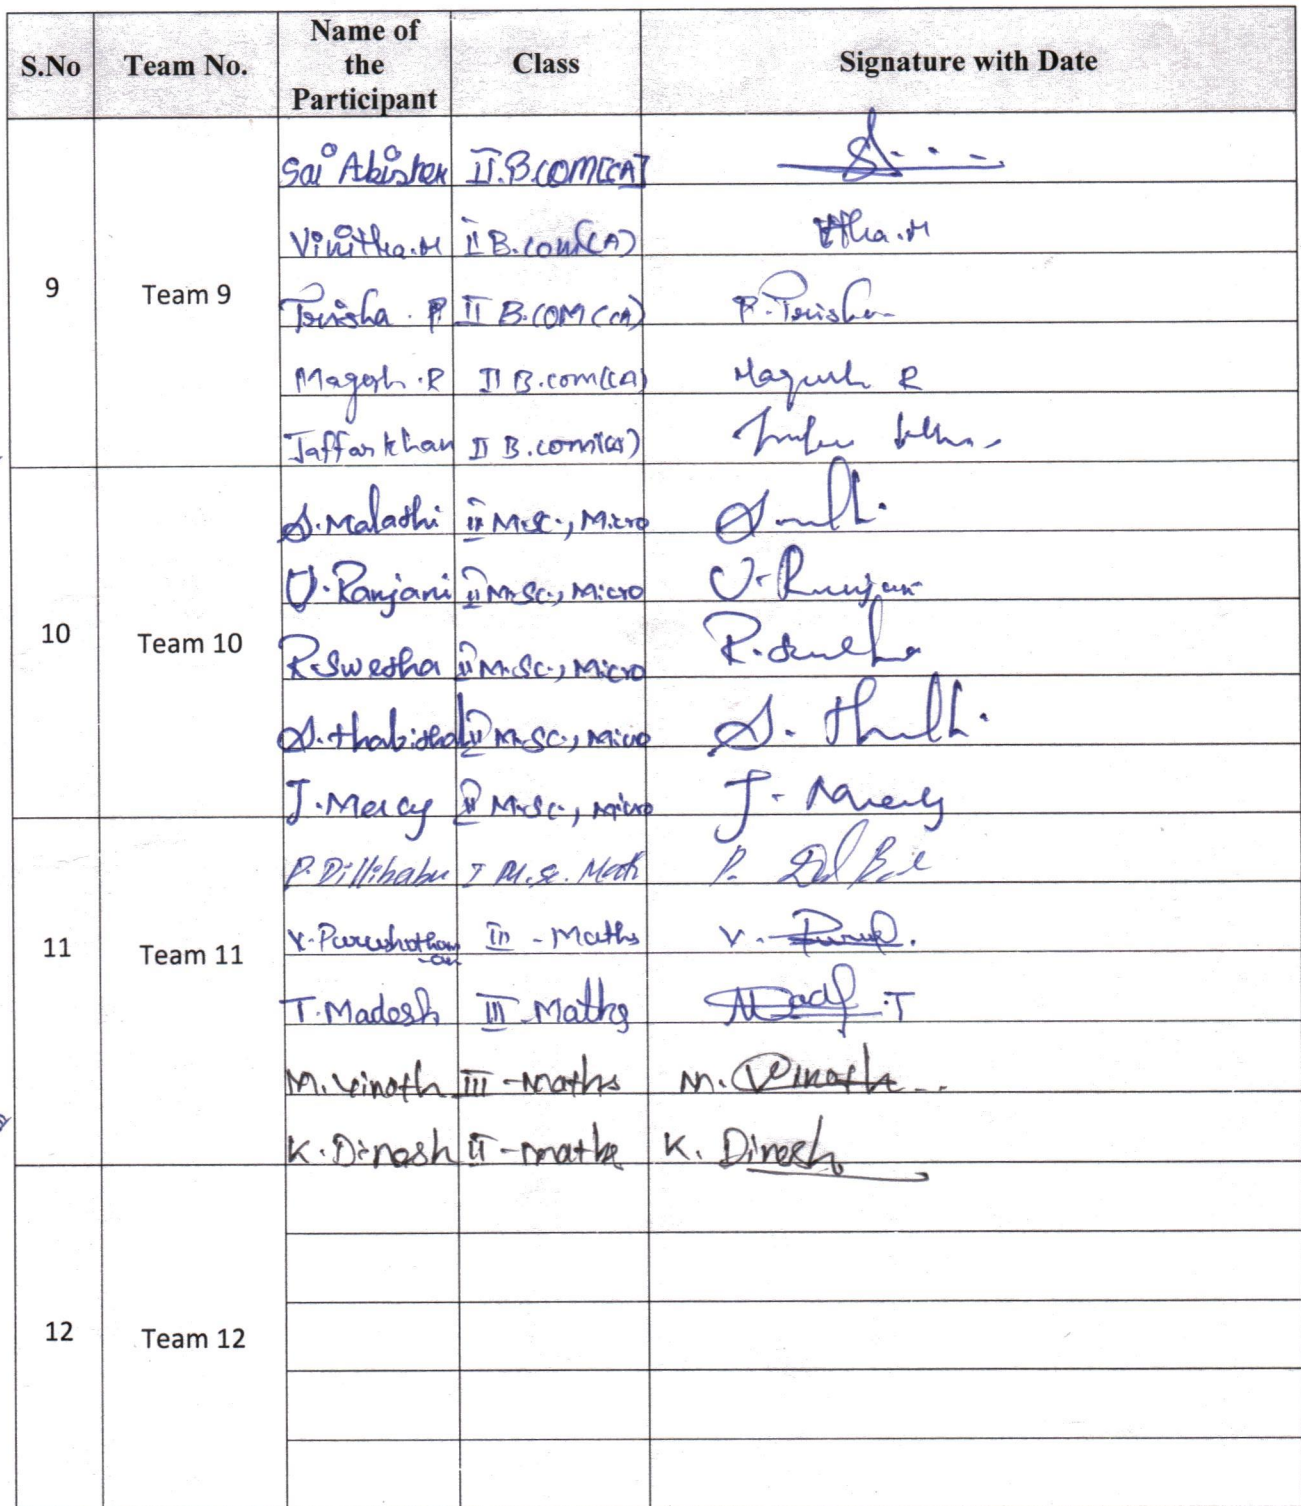 S.No Team No. Name of the Participant Class Signature with Date
Sai Abishek II.B.COM[CA]
Vinitha.M II B.com(CA)
9 Team 9 Trisha . P. II B.COM(CA) P. Trisha
Magesh .R II B.com(CA) Magesh R
Jaffar khan II B.com(CA)
S.Malathi II M.SC., Micro
U.Ranjani II M.SC., Micro U. Ranjani
10 Team 10 R.Swetha II M.SC., Micro
S.thabitha II M.SC., Micro
J.Mercy II M.SC., Micro J. Mercy
P. Dillibabu I M.Sc. Math
11 Team 11 V. Purushotham III - Maths
-an
T. Madesh III Maths
M. Vinoth III - Maths M. Vinoth
K. Dinesh II - maths K. Dinesh
12 Team 12